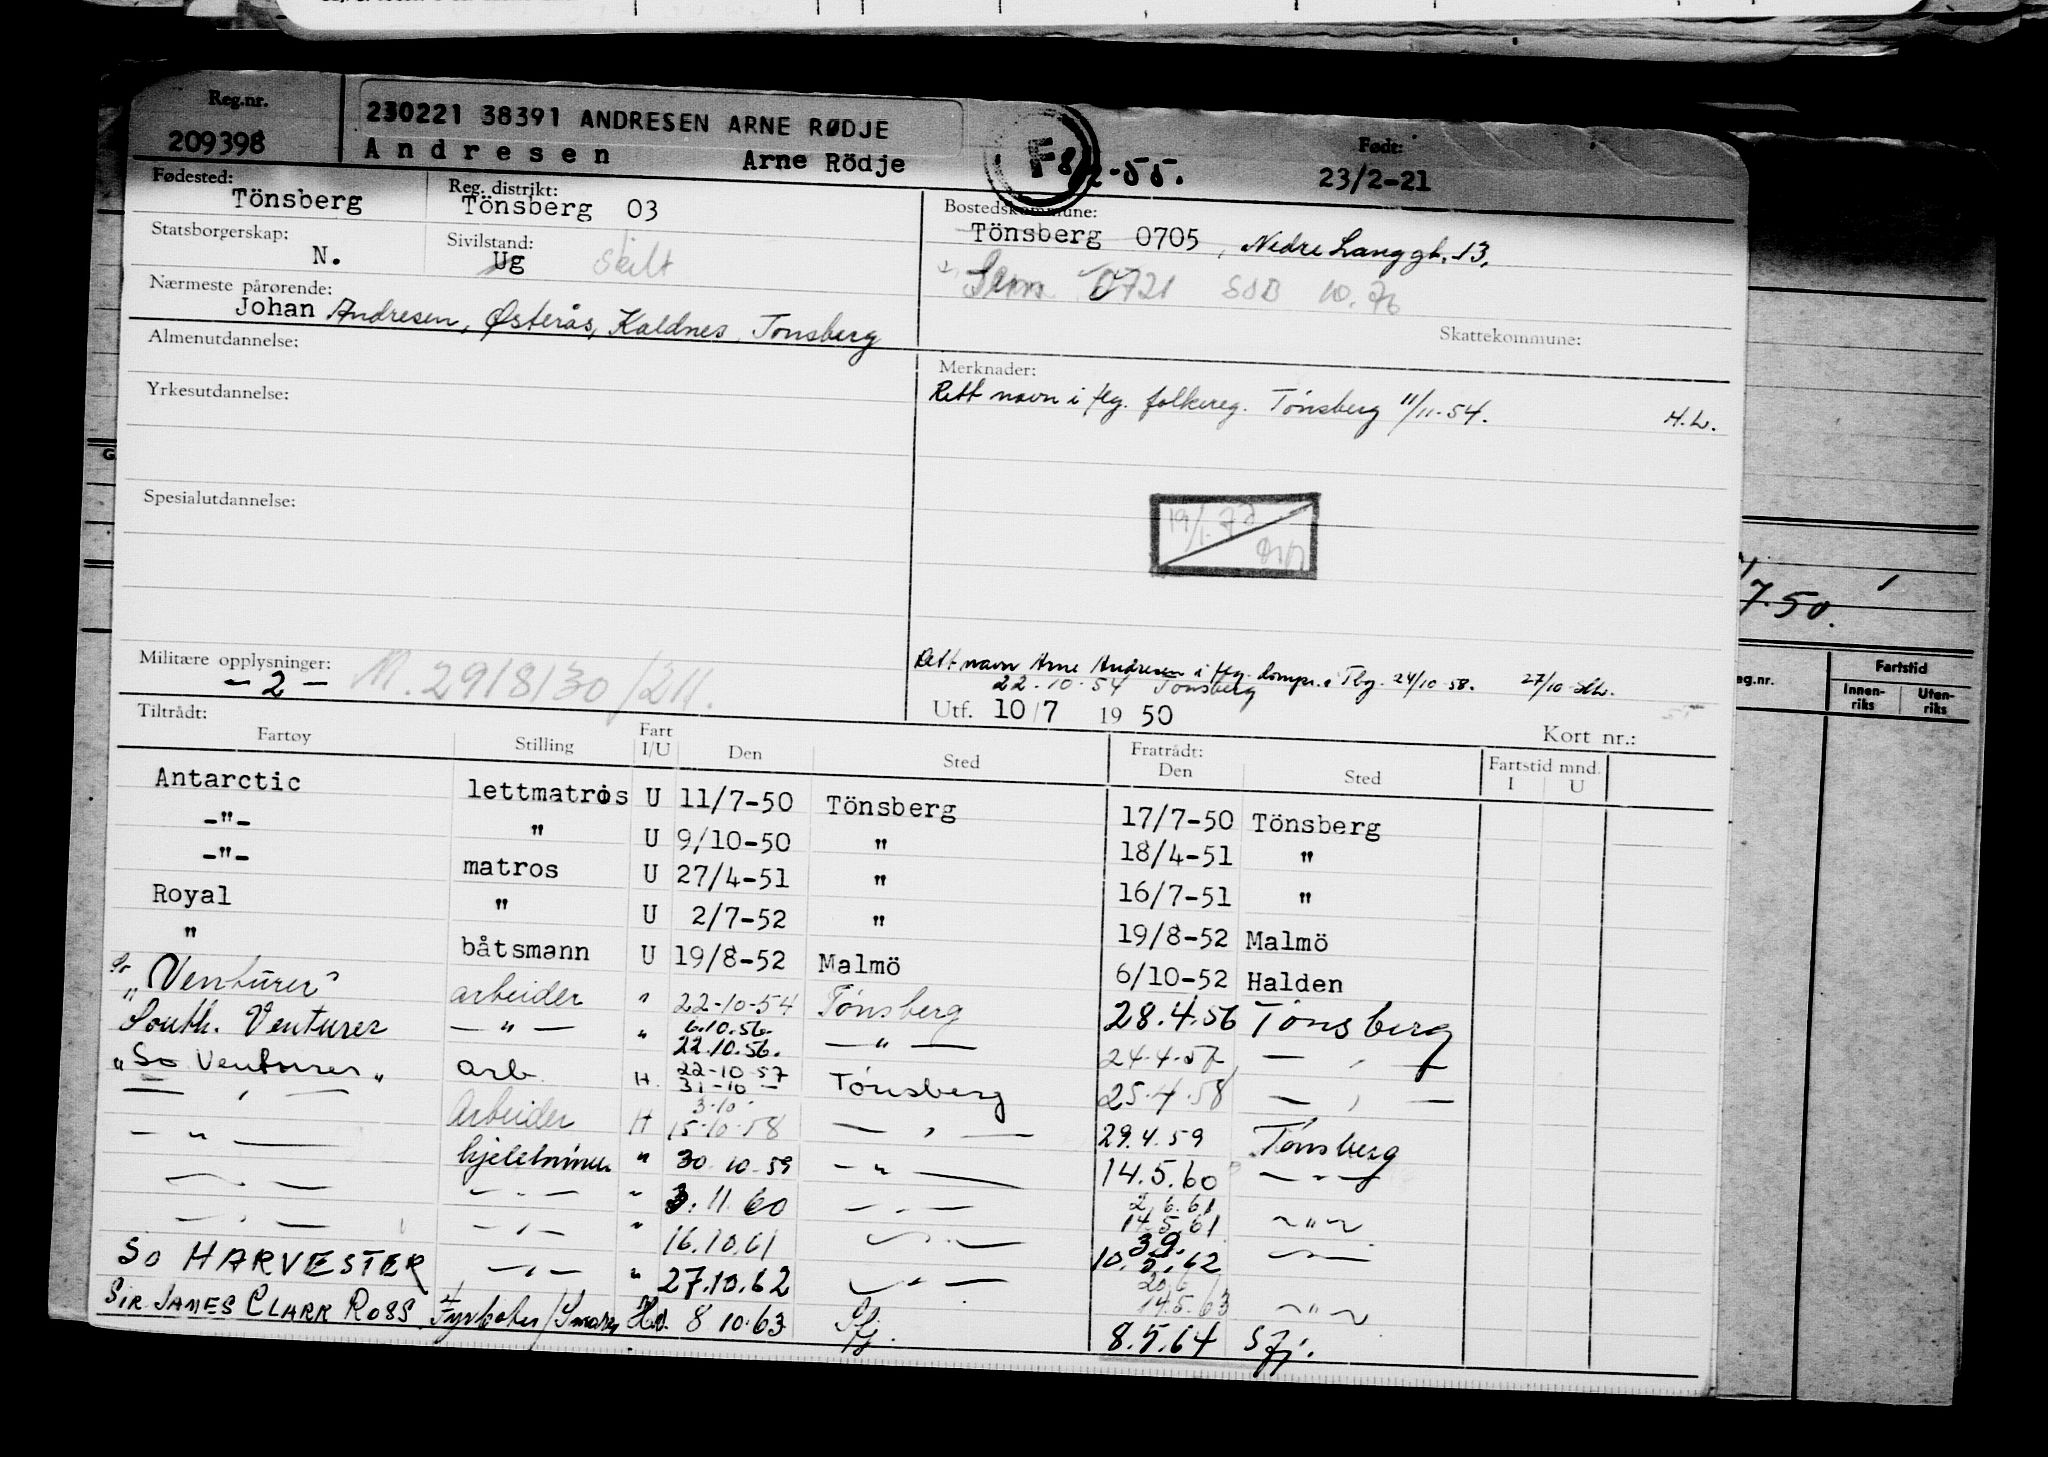 Reg.nr.
209398
230221 38391 ANDRESEN ARNE RØDJE
Andresen Arne Rödje
F 8/2-55.
Født:
23/2-21
Fødested:
Tönsberg
Reg. distrikt:
Tönsberg 03
Bostedskommune:
Tönsberg 0705, Nedre Langgt. 13.
Statsborgerskap:
N.
Sivilstand:
Ug Skilt
Sem 0721 SDB 10.76
Nærmeste pårørende:
Johan Andresen, Østerås, Kaldnes, Tønsberg
Skattekommune:
Almenutdannelse:
Merknader:
Rett navn i flg. folkereg. Tønsberg 11/11-54. H.L.
Yrkesutdannelse:
Spesialutdannelse:
19/1-72
7.50.
Militære opplysninger:
- 2 - M.29/8/30/211.
Rett navn Arne Andresen i flg. Tbg. 24/10-58. 27/10-
22-10-54 Tønsberg
Utf. 10/7 19 50
Kort nr.:
Fartstid
Innenriks Utenriks
Tiltrådt:
Fartøy Stilling Fart I/U Den Sted Fratrådt: Den Sted Fartstid mnd. I U
Antarctic lettmatros U 11/7-50 Tönsberg 17/7-50 Tönsberg
-"- " U 9/10-50 " 18/4-51 "
-"- matros U 27/4-51 " 16/7-51 "
Royal " U 2/7-52 " 19/8-52 Malmö
" båtsmann U 19/8-52 Malmö 6/10-52 Halden
"Venturer" arbeider " 22-10-54 Tønsberg 28.4.56 Tønsberg
South. Venturer -"- " 6.10.56. 22.10.56. -"- 24.4.57 -"-
"So Venturer" arb. H. 22-10-57 31-10- Tønsberg 25.4.58 -"-
-"- Arbeider H 3.10. 15.10.58 -"- 29.4.59 Tønsberg
-"- " 30.10.59 -"- 14.5.60 -"-
-"- -"- " 3.11.60 -"- 2.6.61 14.5.61 -"-
-"- -"- " 16.10.61 -"- 39. 10.5.62 -"-
So HARVESTER -"- " 27.10.62 -"- 20.6 14.5.63 -"-
SIR JAMES CLARK ROSS Fyrbøter/Smører 8 10.63 Sfj. 8.5.64 Sfj.